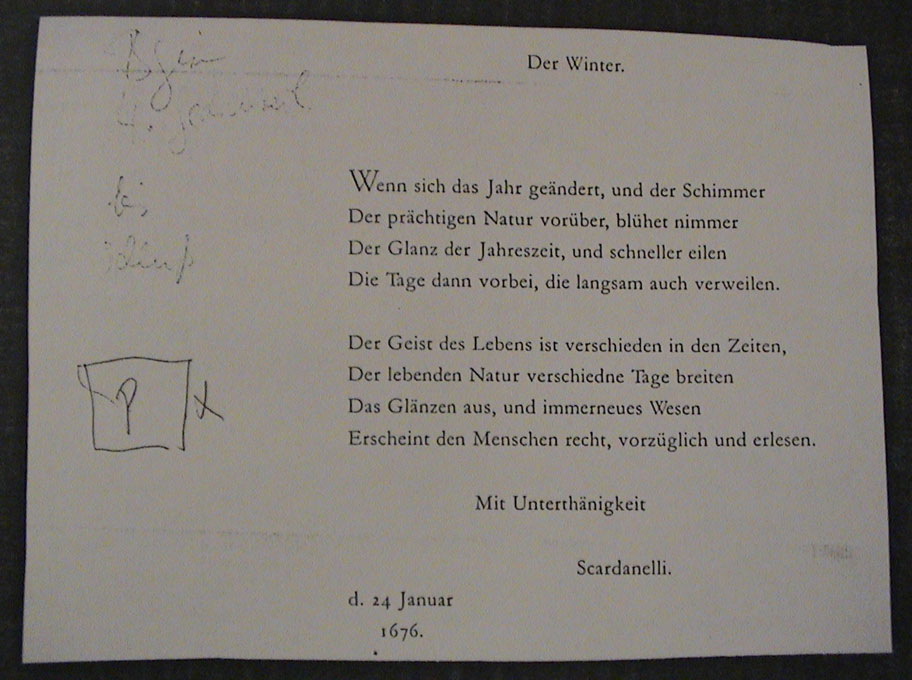 Der Winter.
Wenn sich das Jahr geändert, und der Schimmer
Der prächtigen Natur vorüber, blühet nimmer
Der Glanz der Jahreszeit, und schneller eilen
Die Tage dann vorbei, die langsam auch verweilen.
Der Geist des Lebens ist verschieden in den Zeiten,
Der lebenden Natur verschiedne Tage breiten
Das Glänzen aus, und immerneues Wesen
Erscheint den Menschen recht, vorzüglich und erlesen.
Mit Unterthänigkeit
Scardanelli.
d. 24 Januar
1676.
bis
P x